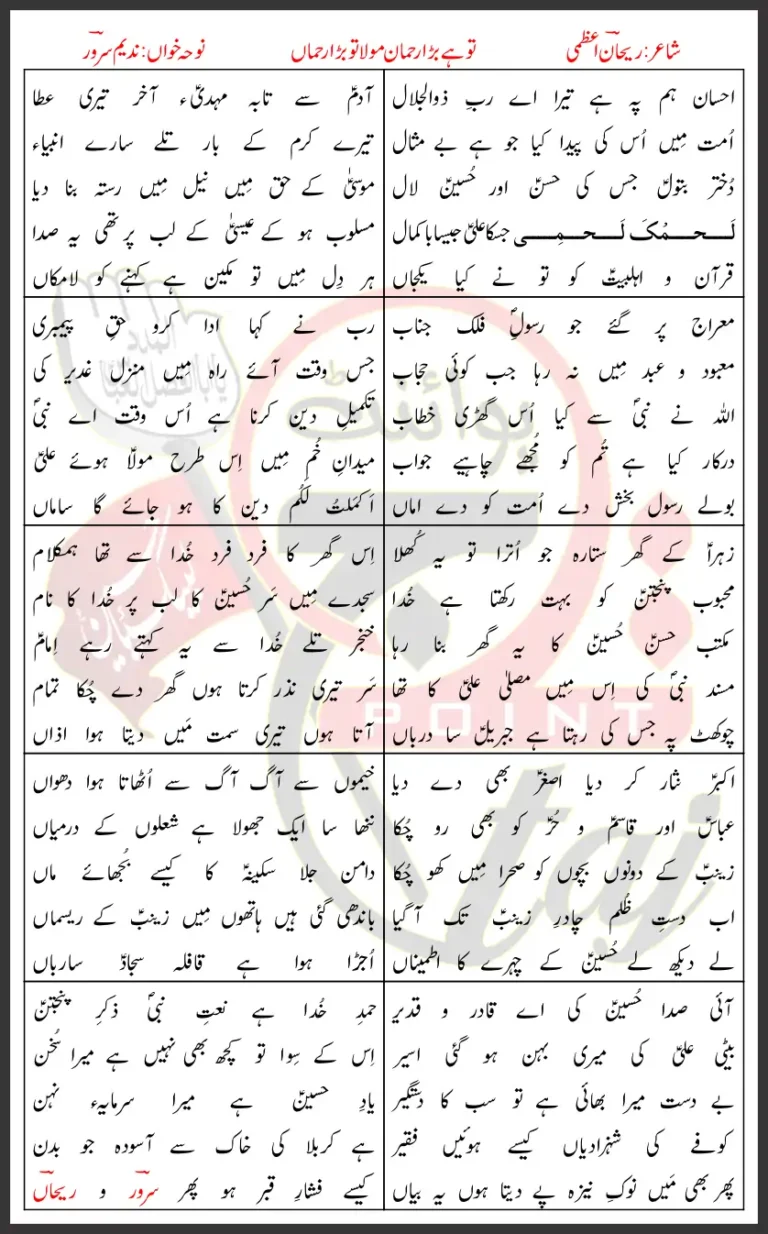 شاعر: ریحان اعظمی
تو ہے بڑا رحمان مولا تو بڑا رحماں
نوحہ خواں: ندیم سرور
احسان ہم پہ ہے تیرا اے ربِ ذوالجلال
اُمت مِیں اُس کی پیدا کیا جو ہے بے مثال
دُختر بتولؑ جس کی حسنؑ اور حُسینؑ لال
لَحمُکَ لَحمِی جسکا علیؑ جیسا باکمال
قرآن و اہلبیتؑ کو تو نے کیا یکجاں
آدمؑ سے تابہ مہدیؑء آخر تیری عطا
تیرے کرم کے بار تلے سارے انبیاء
موسیٰؑ کے حق مِیں نیل مِیں رستہ بنا دیا
مسلوب ہو کے عیسیٰؑ کے لب پر تھی یہ صدا
ہر دِل مِیں تو مکین ہے کہنے کو لامکاں
معراج پر گئے جو رسولِؐ فلک جناب
معبود و عبد مِیں نہ رہا جب کوئی حجاب
اللہ نے نبیؐ سے کیا اُس گھڑی خطاب
درکار کیا ہے تُم کو مُجھے چاہیے جواب
بولے رسول بخش دے اُمت کو دے اماں
رب نے کہا ادا کرو حقِ پیمبری
جس وقت آئے راہ مِیں منزل غدیر کی
تکمیلِ دین کرنا ہے اُس وقت اے نبیؐ
میدانِ خُم مِیں اِس طرح مولاؑ ہوئے علیؑ
اَکمَلتُ لَکُم دین کا ہو جائے گا ساماں
زہراؑ کے گھر ستارہ جو اُترا تو یہ کُھلا
محبوب پنجتنؑ کو بہت رکھتا ہے خُدا
مکتب حسنؑ حُسینؑ کا یہ گھر بنا رہا
مسند نبیؐ کی اِس مِیں مصلیٰ علیؑ کا تھا
چوکھٹ پہ جس کی رہتا ہے جبریلؑ سا درباں
اِس گھر کا فرد فرد خُدا سے تھا ہمکلام
سجدے مِیں سَر حُسینؑ کا لب پر خُدا کا نام
خنجر تلے خُدا سے یہ کہتے رہے اِمامؑ
سَر تیری نذر کرتا ہوں گھر دے چُکا تمام
آتا ہوں تیری سمت مَیں دیتا ہوا اذاں
اکبرؑ نثار کر دیا اصغرؑ بھی دے دیا
عباسؑ اور قاسمؑ و حُرؑ کو بھی رو چُکا
زینبؑ کے دونوں بچوں کو صحرا مِیں کھو چُکا
اب دستِ ظُلم چادرِ زینبؑ تک آ گیا
لے دیکھ لے حُسینؑ کے چہرے کا اطمیناں
خیموں سے آگ آگ سے اُٹھاتا ہوا دھواں
ننھا سا ایک جھولا ہے شعلوں کے درمیاں
دامن جلا سکینہؑ کا کیسے بُجھائے ماں
باندھی گئی ہیں ہاتھوں مِیں زینبؑ کے ریسماں
اُجڑا ہوا ہے قافلہ سجادؑ سارباں
آئی صدا حُسینؑ کی اے قادر و قدیر
بیٹی علیؑ کی میری بہن ہو گئی اسیر
بے دست میرا بھائی ہے تو سب کا دستگیر
کوفے کی شہزادیاں کیسے ہوئیں فقیر
پھر بھی مَیں نوکِ نیزہ پے دیتا ہوں یہ بیاں
حمدِ خُدا ہے نعتِ نبیؐ ذکرِ پنجتنؑ
اِس کے سِوا تو کچھ بھی نہیں ہے میرا سُخن
یادِ حسینؑ ہے میرا سرمایہء نہن
ہے کربلا کی خاک سے آسودہ جو بدن
کیسے فشارِ قبر ہو پھر سرور و ریحاں
پوائنٹ
POINT
taj